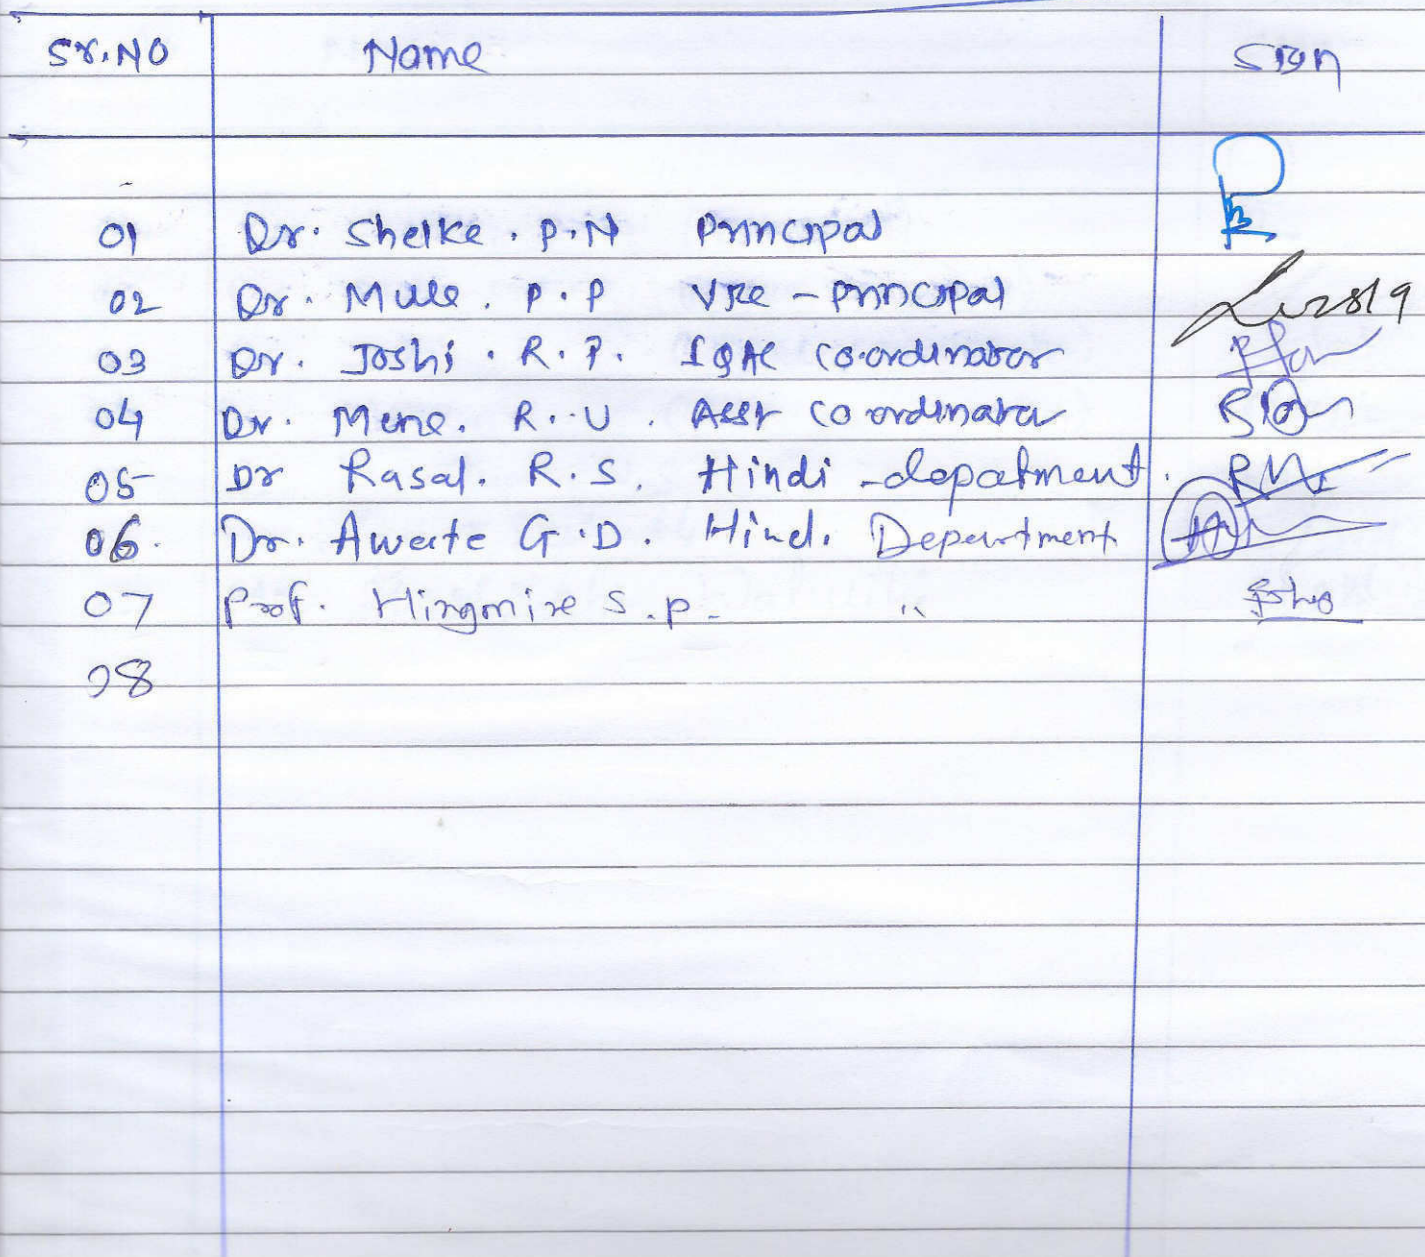 Sr.NO Name Sign
01 Dr. Shelke . P.N Principal
02 Dr. Mule . P.P Vice - principal
03 Dr. Joshi . R.P. IQAC Co-ordinator
04 Dr. Mene. R. U . Asst Co ordinator
05 Dr Rasal. R.S. Hindi -depatment.
06. Dr. Awate G.D. Hindi Department
07 Prof. Hingmire S.p. "
08